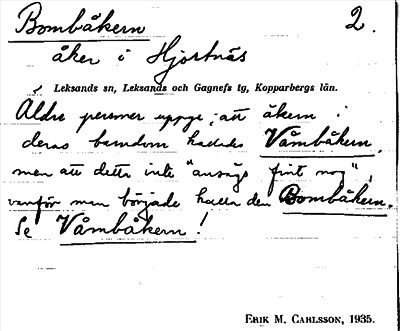 Bombåkern 2.
åker i Hjortnäs
Leksands sn, Leksands och Gagnefs tg, Kopparbergs län.
Äldre personer uppge, att åkern i
deras barndom kallades Våmbåkern,
men att detta inte "ansågs fint nog",
varför man började kalla den Bombåkern.
Se Våmbåkern!
ERIK M. CARLSSON, 1935.